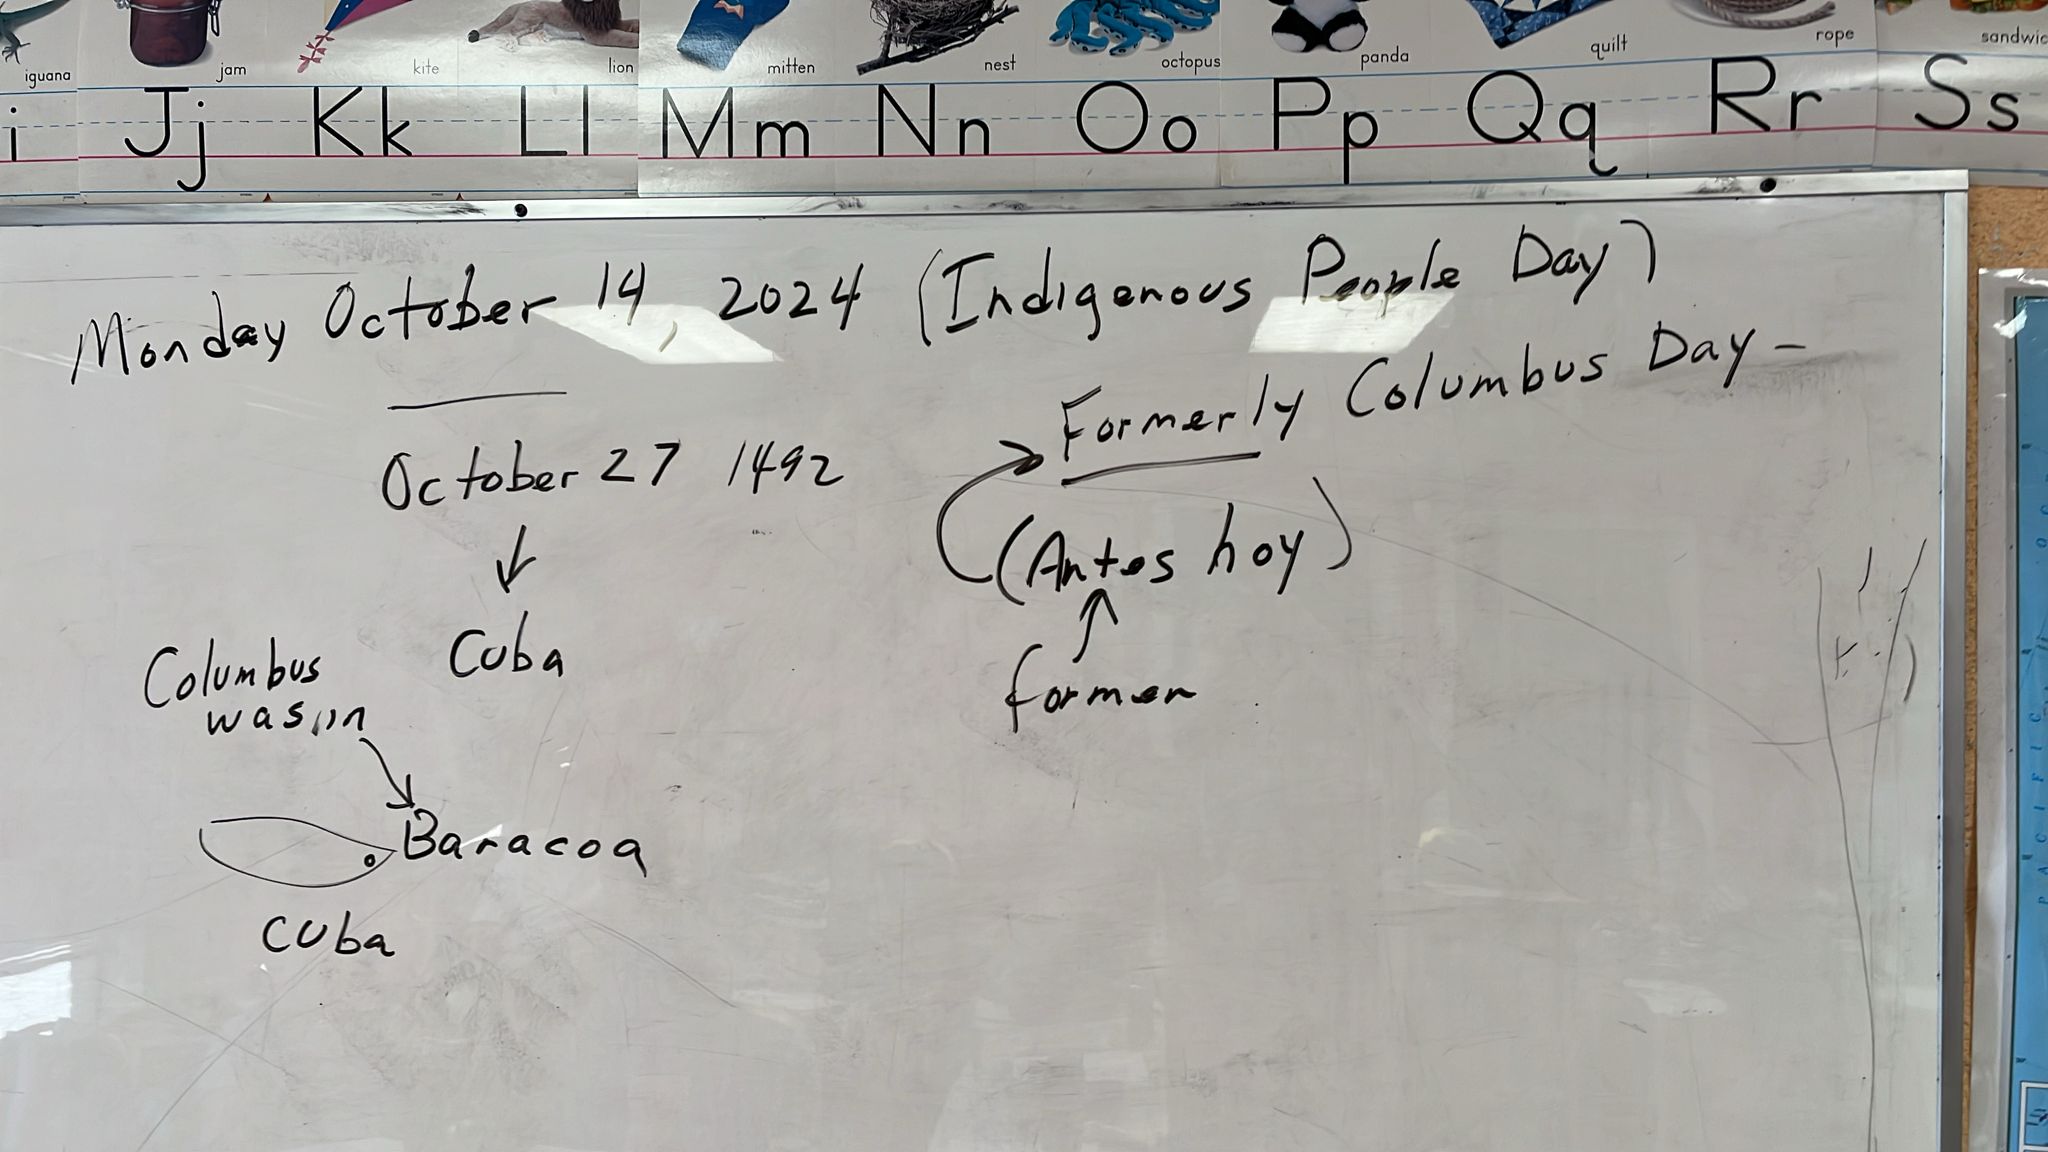 iguana jam kite lion mitten nest octopus panda quilt rope
i Jj Kk Ll Mm Nn Oo Pp Qq Rr Ss
Monday October 14, 2024 (Indigenous People Day)
Formerly Columbus Day -
October 27 1492
(Antes hoy)
Cuba
former
Columbus
was in
Baracoa
Cuba
PACIFIC